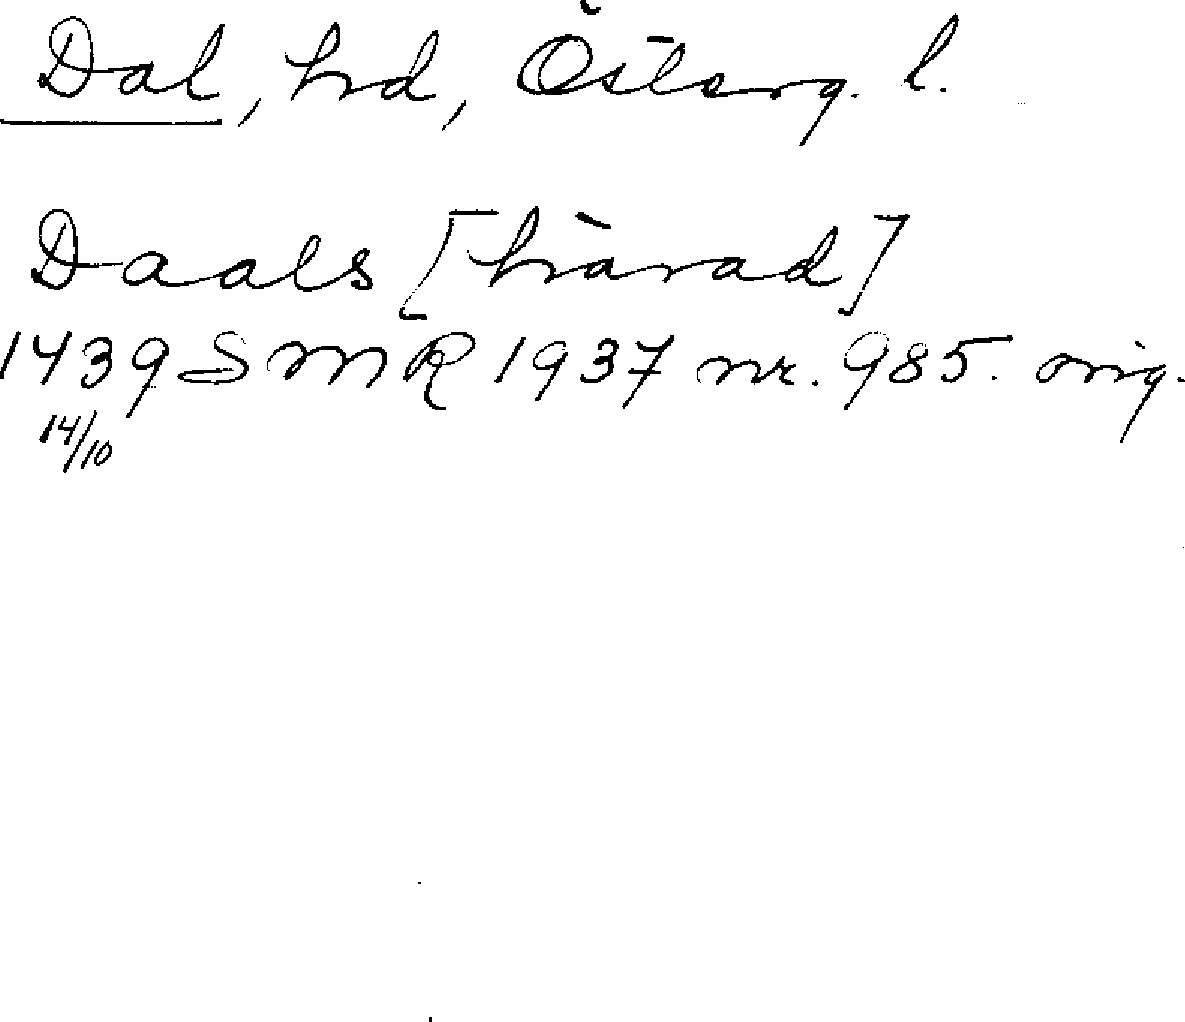 Dal, hd, Österg. l.
Daals [härad]
1439 SMR 1937 nr. 985. orig.
14/10